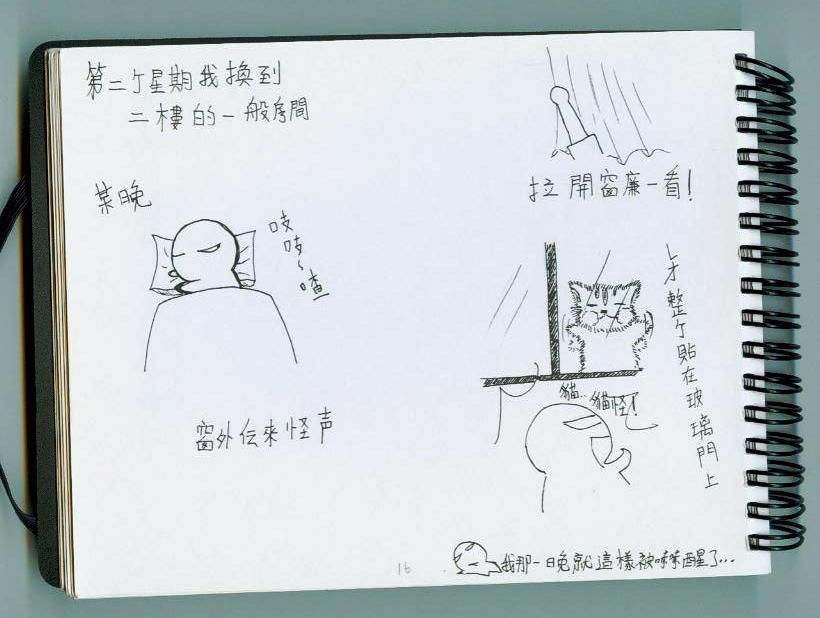 第二个星期我換到
二樓的一般房間
某晚
吱
吱~
喳
窗外伝來怪声
拉開窗廉一看!
整个貼在玻璃門上
貓.. 貓怪!
16
我那一晚就這樣被咪咪醒了...